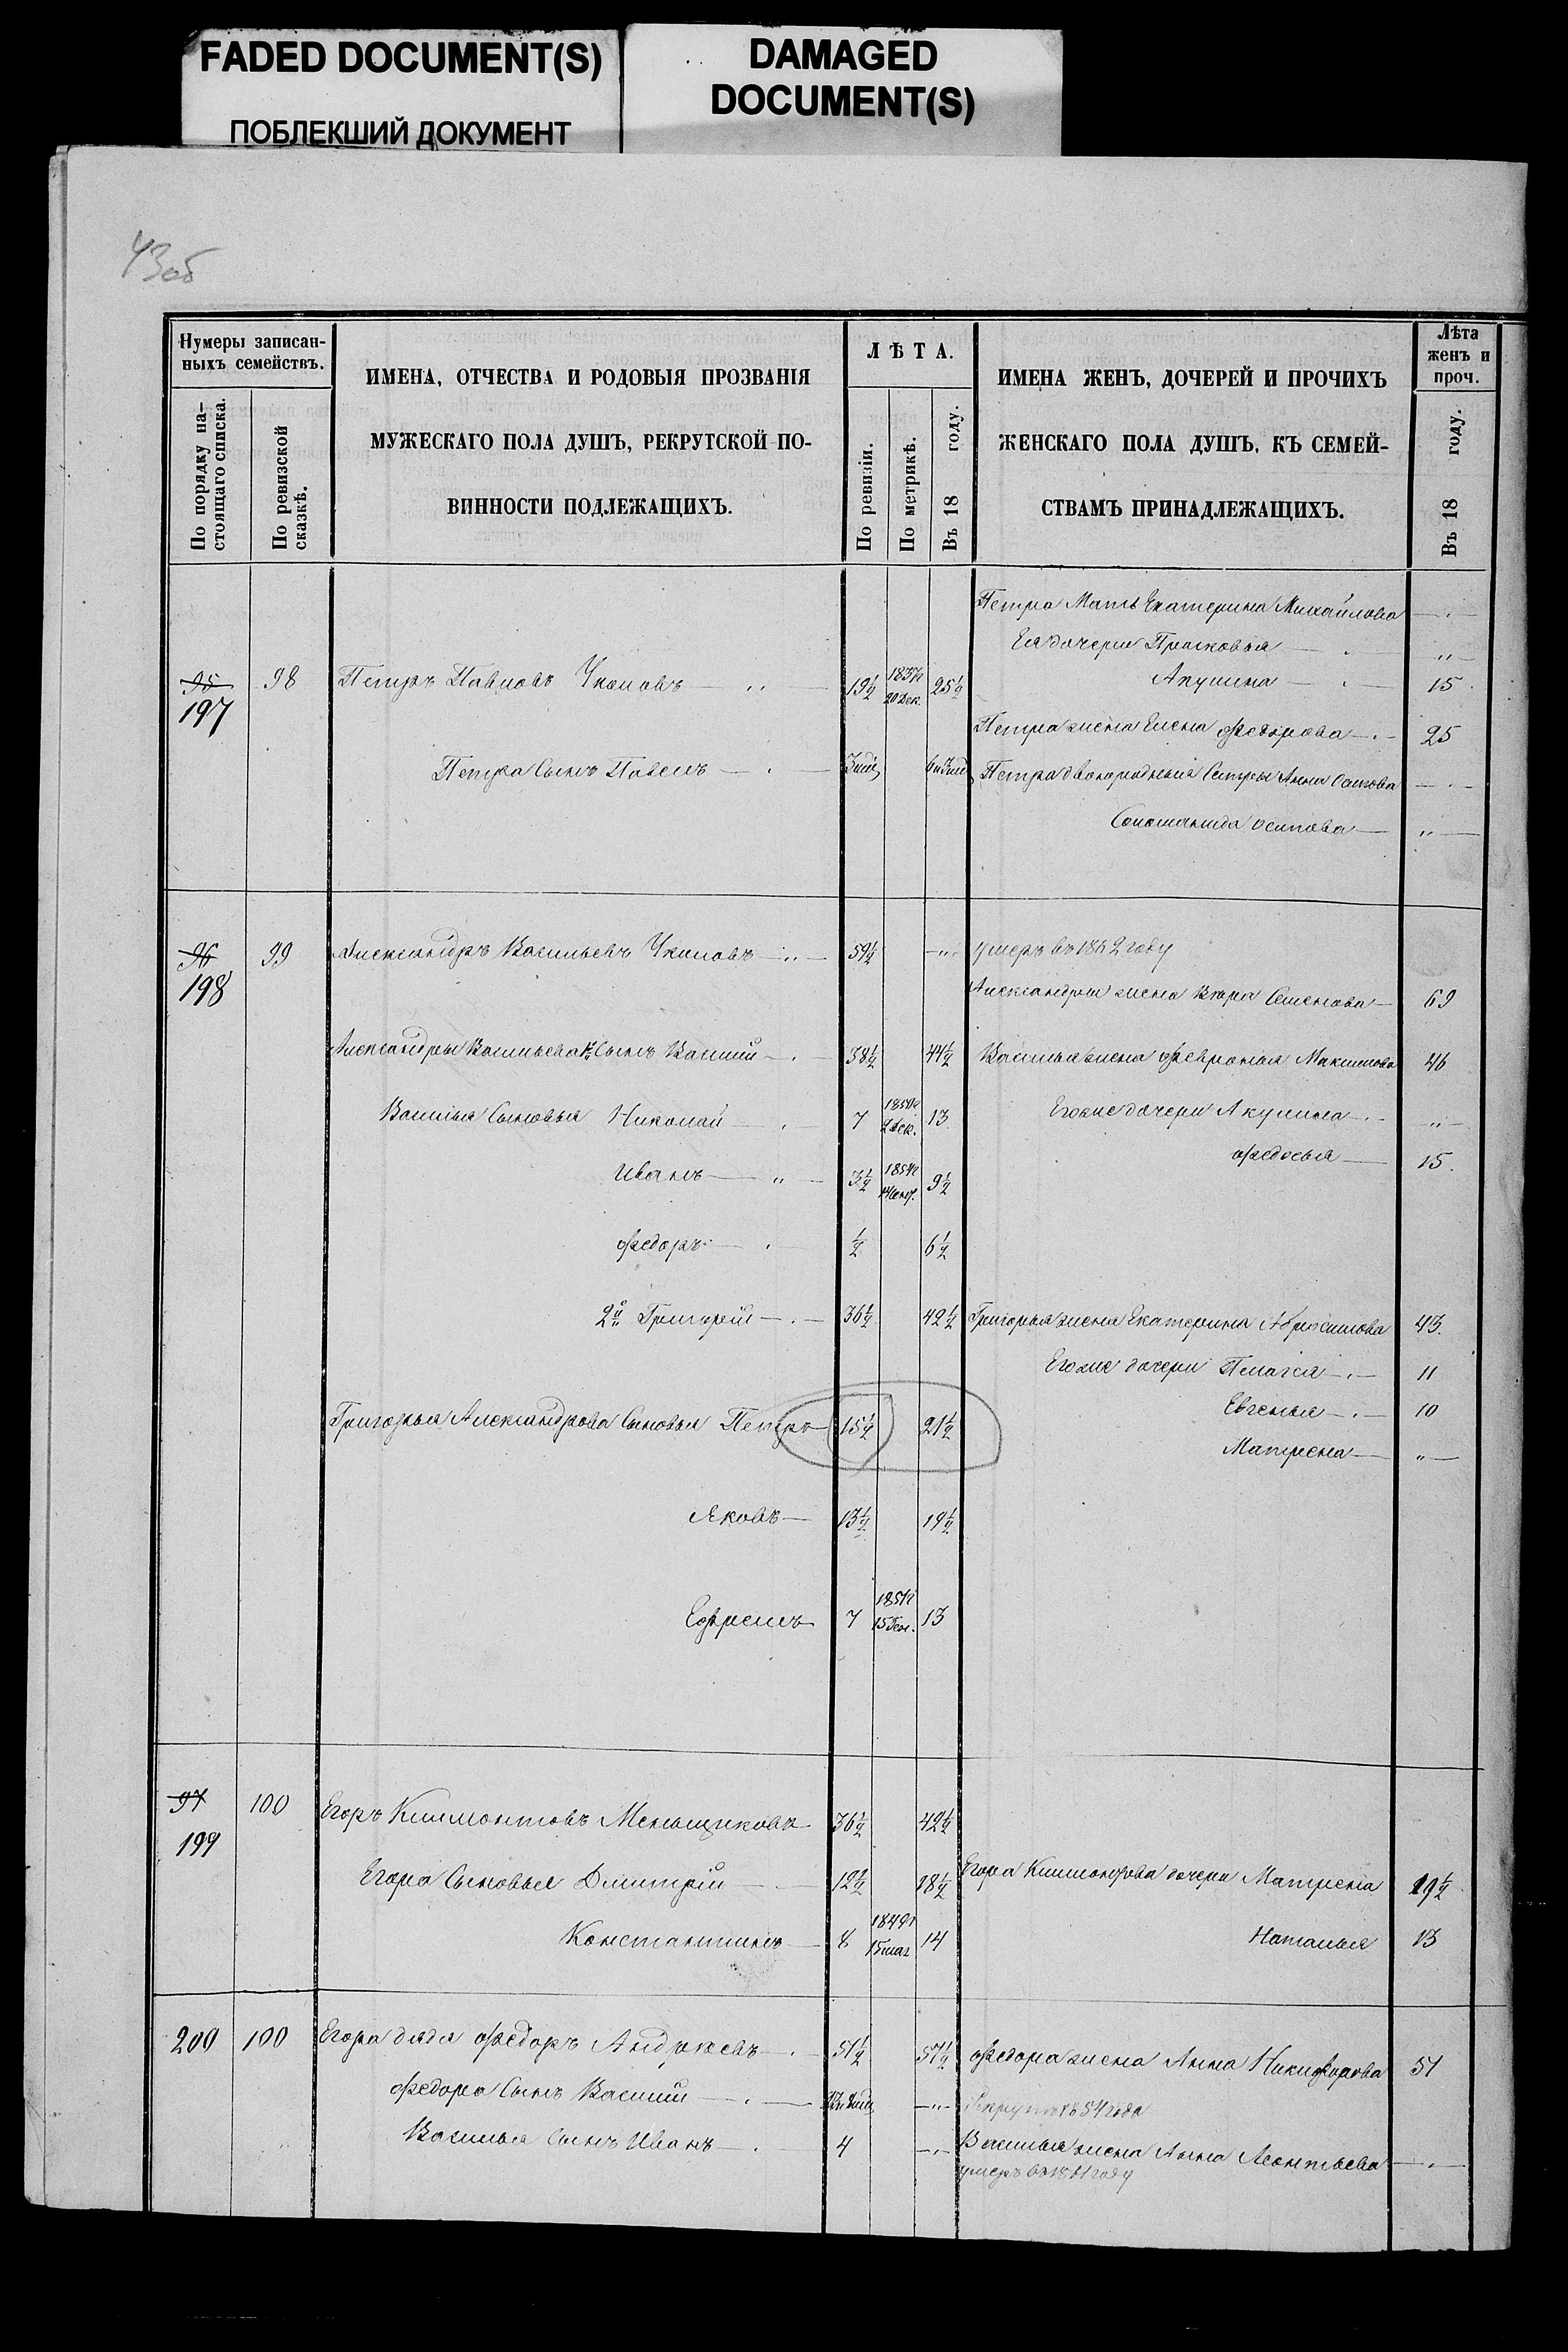 FADED DOCUMENT(S)
ПОБЛЕКШИЙ ДОКУМЕНТ
DAMAGED
DOCUMENT(S)
43об
Нумеры записан-
ныхъ семействъ.
По порядку на-
стоящаго списка.
По ревизской
сказкѣ.
ИМЕНА, ОТЧЕСТВА И РОДОВЫЯ ПРОЗВАНІЯ
МУЖЕСКАГО ПОЛА ДУШЪ, РЕКРУТСКОЙ ПО-
ВИННОСТИ ПОДЛЕЖАЩИХЪ.
ЛѢТА.
По ревизіи.
По метрикѣ.
Въ 18 году.
ИМЕНА ЖЕНЪ, ДОЧЕРЕЙ И ПРОЧИХЪ
ЖЕНСКАГО ПОЛА ДУШЪ, КЪ СЕМЕЙ-
СТВАМЪ ПРИНАДЛЕЖАЩИХЪ.
Лѣта
женъ и
проч.
Въ 18 году.
Петра Мать Екатерина Михайлова —
Ея дочери Прасковья — „ —
95 98 Петръ Павловъ — „ — 19½ 1837г 20 Дек. 25½ Акулина — 15
197
Петра жена Елена Федорова — 25
Петра Сынъ Павелъ — Петра двоюродныя Сестры Анна Осипова —
Соломанида Осипова — „ —
96 99 Александръ Васильевъ — „ — 59½ — „ умеръ въ 1862 году
198
Александры жена Вѣра Семенова — 69
Александры Васильева Сынъ Василій — 38½ 44½ Василья жена Февронья Максимова 46
Василья Сыновья Николай — 7 2 Дек. 13 Егоже дочери Акулина — „ —
Иванъ — „ — 3½ 1854г 9½ Федосья — 15.
Федоръ — ½ 6½
2й Григорій — 36½ 42½ Григорья жена Екатерина Абросимова 43.
Егоже дочери Пелагея — 11
Евгенья — 10
Григорья Александрова Сыновья Петръ 15½ 21½
Матрена — „ —
Яковъ — 13½ 19½
Ефремъ 7 1851г 13
97 100 Егоръ Климонтовъ Меньщиковъ 36½ 42½
199
Егора Сыновья Дмитрій — 12½ 18½ Егора Климонтова дочери Матрена 19½
Константинъ — 8 1849г 14 Наталья 13
200 100 Егора дядя Федоръ Андреевъ — 51½ 57½ Федора жена Анна Никифорова 51
Федора Сынъ Василій — — „ — Рекрутъ 1854 года
Василья Сынъ Иванъ — 4 — Василья жена Анна Леонтьева —
умеръ въ 1861 году